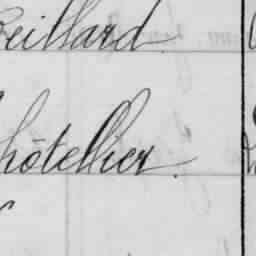 Beillard
hôtellier